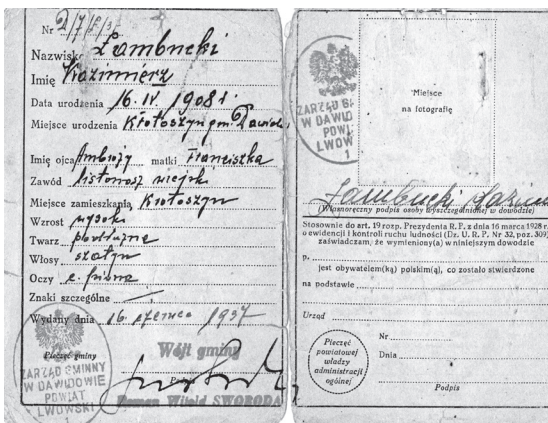 Nr 2/7/
Nazwisko Zambucki
Imię Kazimierz
Data urodzenia 16. IV. 1908 r.
Miejsce urodzenia Krotoszyn gm. Dawidów
Imię ojca Ambroży matki Franciszka
Zawód listonosz wiejski
Miejsce zamieszkania Krotoszyn
Wzrost wysoki
Twarz podłużna
Włosy szatyn
Oczy
Znaki szczególne —
Wydany dnia 16 czerwca 1937
Pieczęć gminy
ZARZĄD GMINNY
W DAWIDOWIE
POWIAT
LWOWSKI
1
Wójt gminy
Roman Witold SWOBODA
ZARZĄD G
W DAWID
POWI
LWOW
1
Miejsce
na fotografię
Zambucki Kazim
(Własnoręczny podpis osoby wyszczególnionej w dowodzie)
Stosownie do art. 19 rozp. Prezydenta R. P. z dnia 16 marca 1928 r.
o ewidencji i kontroli ruchu ludności (Dz. U. R. P. Nr 32, poz. 309)
zaświadczam, że wymieniony(a) w niniejszym dowodzie
p.
jest obywatelem(ką) polskim(ą), co zostało stwierdzone
na podstawie
Urząd
Pieczęć
powiatowej
władzy
administracji
ogólnej
Nr
Dnia
Podpis